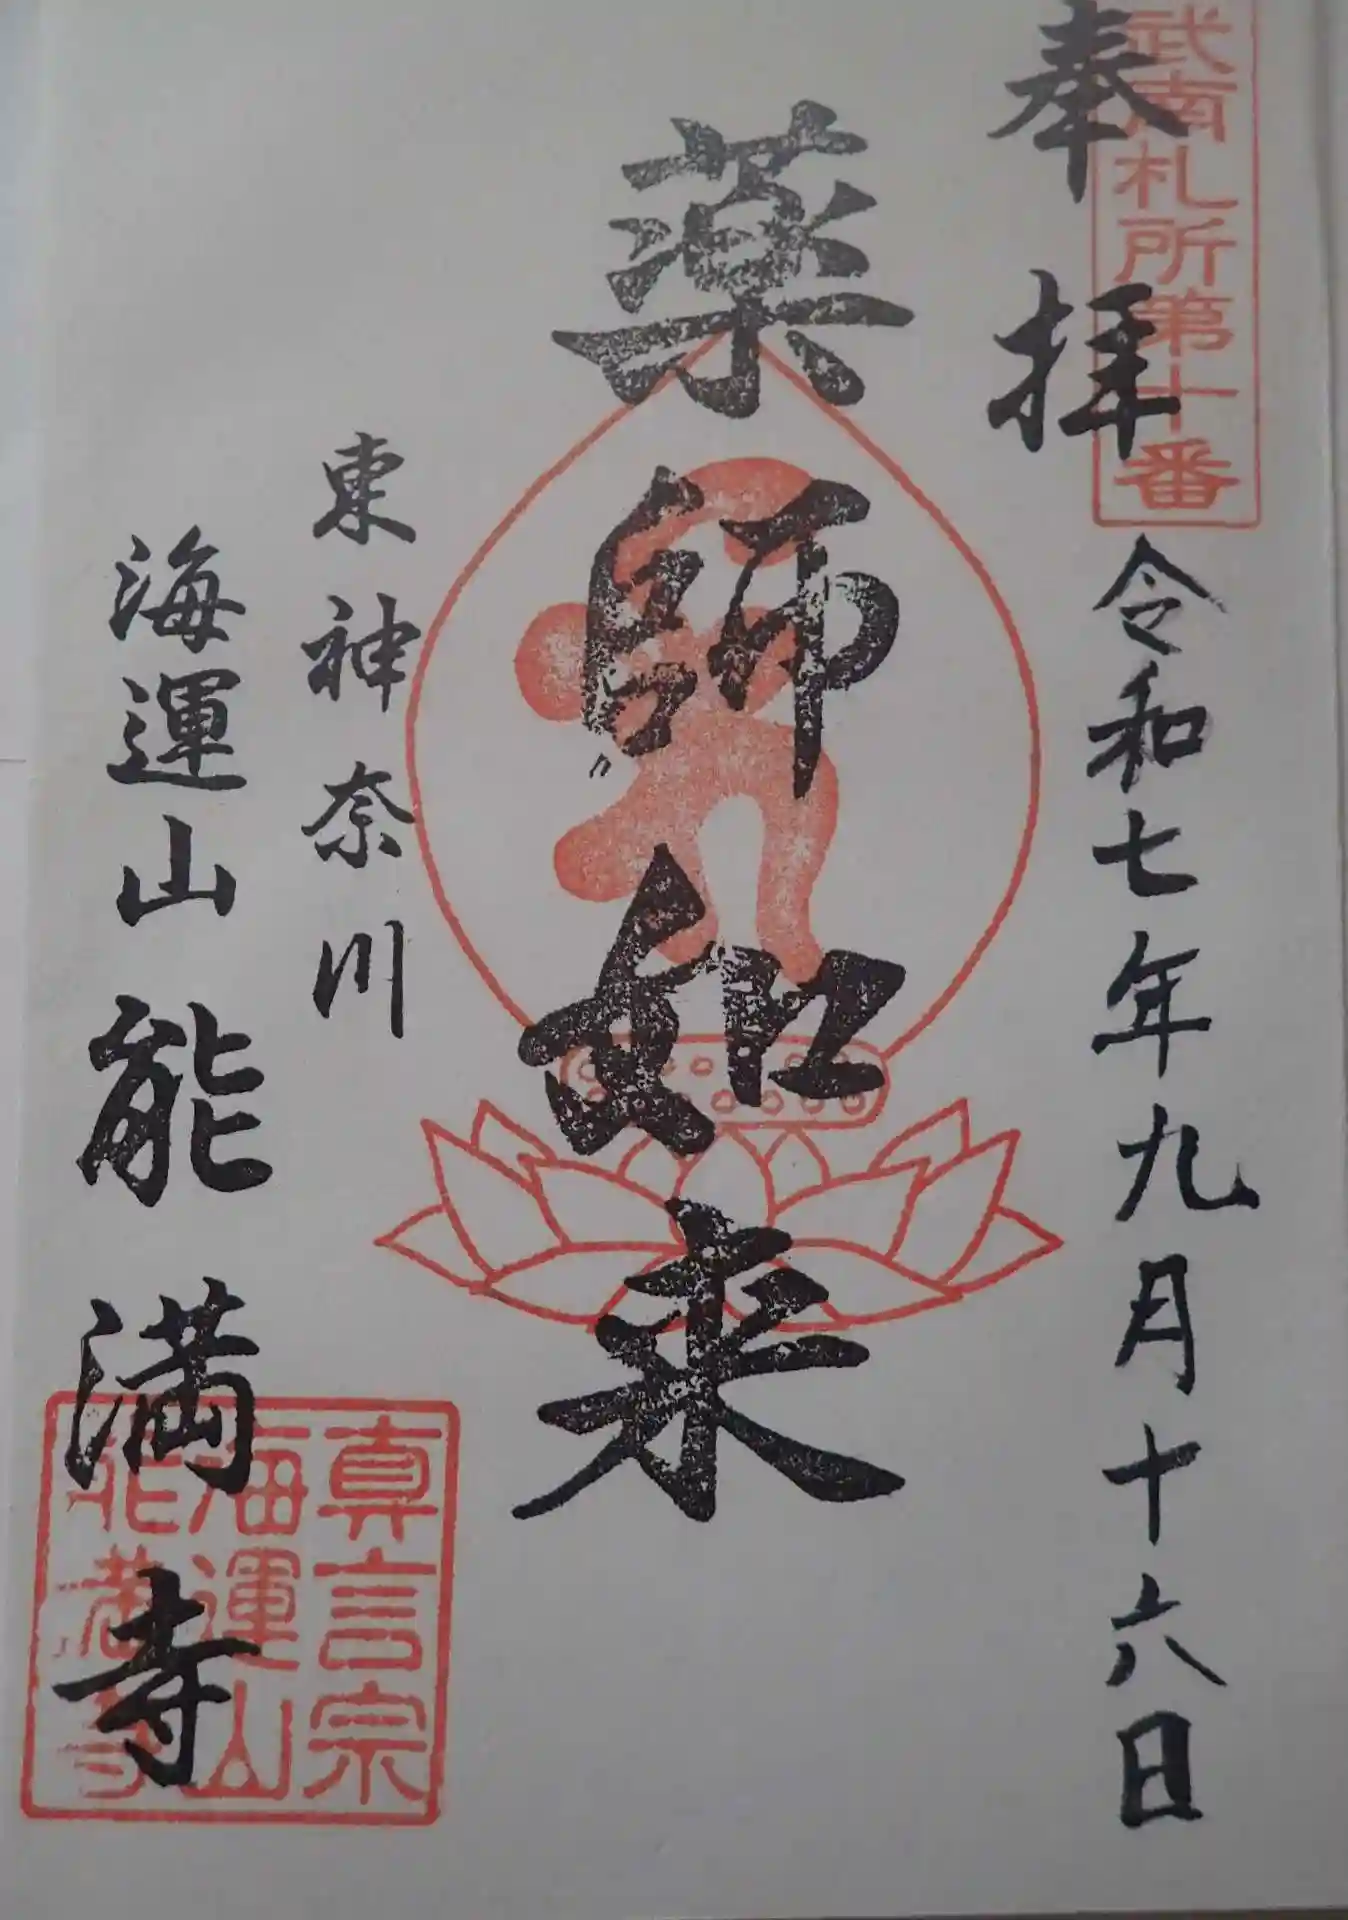 武南札所第十番
奉拝
令和七年九月十六日
薬師如来
東神奈川
海運山能満寺
真言宗
海運山
能満寺